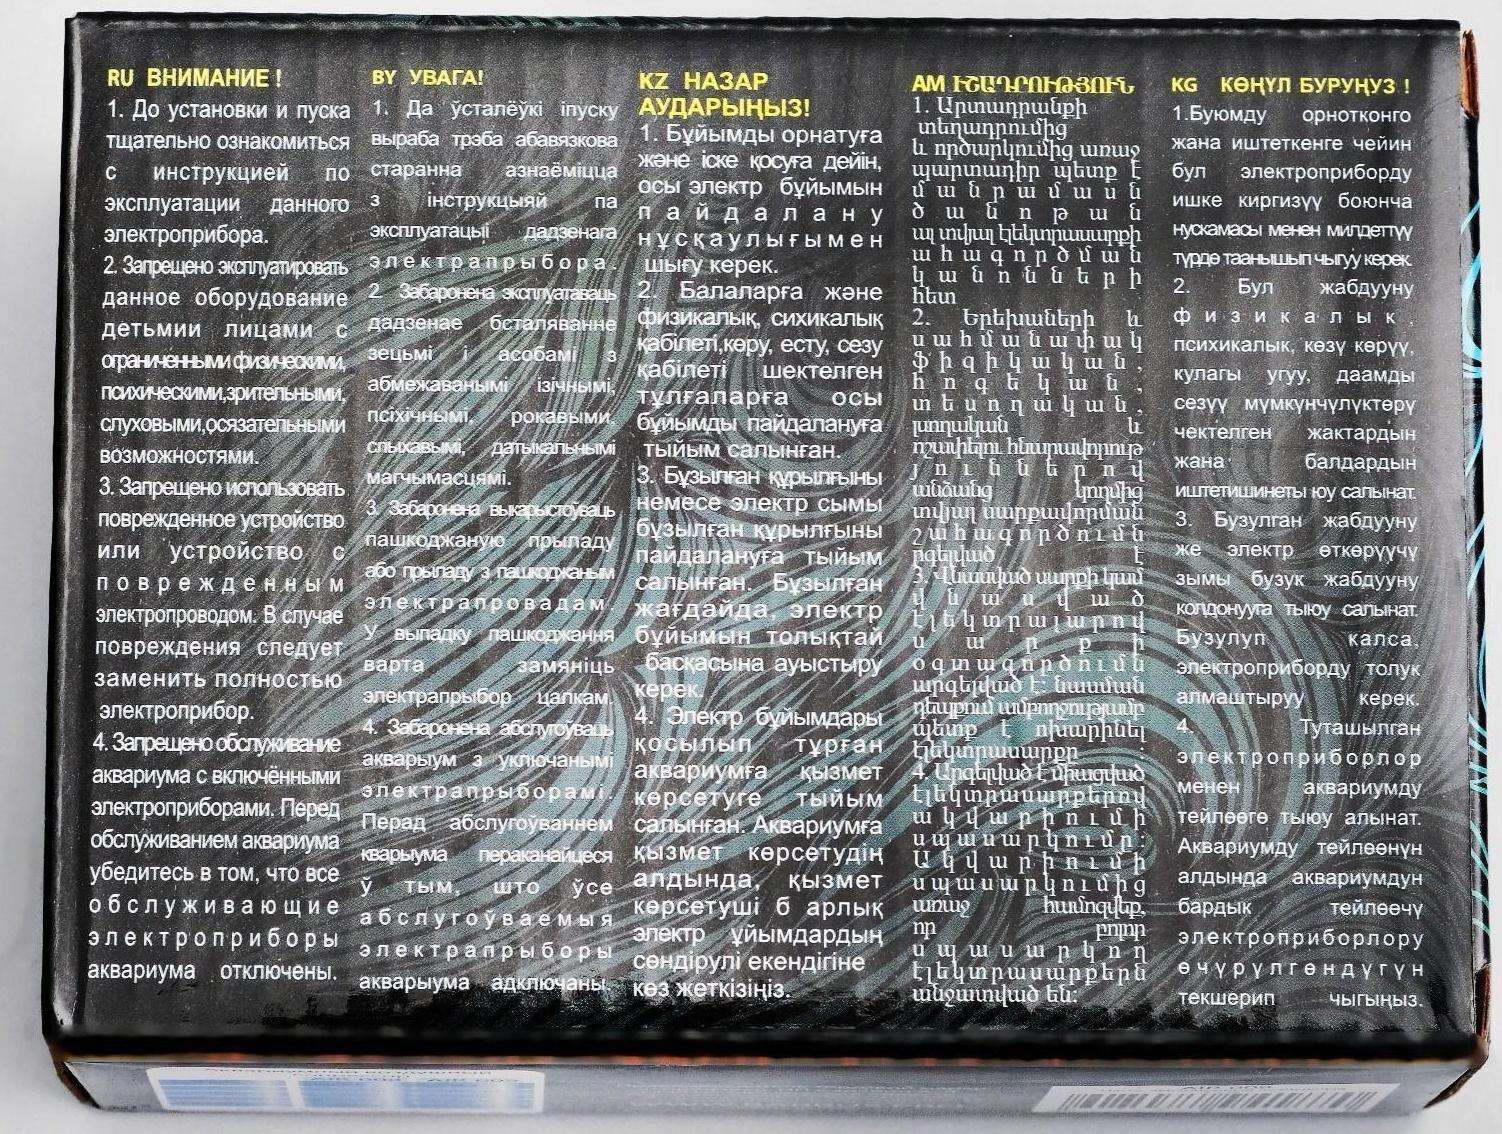 RU ВНИМАНИЕ !
1. До установки и пуска
тщательно ознакомиться
с инструкцией по
эксплуатации данного
электроприбора.
2. Запрещено эксплуатировать
данное оборудование
детьмии лицами с
ограниченными физическими,
психическими,зрительными,
слуховыми,осязательными
возможностями.
3. Запрещено использовать
поврежденное устройство
или устройство с
поврежденным
электропроводом. В случае
повреждения следует
заменить полностью
электроприбор.
4. Запрещено обслуживание
аквариума с включёнными
электроприборами. Перед
обслуживанием аквариума
убедитесь в том, что все
обслуживающие
электроприборы
аквариума отключены.
BY УВАГА!
1. Да ўсталёўкі іпуску
выраба трэба абавязкова
старанна азнаёміцца
з інструкцыяй па
эксплуатацыі дадзенага
электрапрыбора.
2. Забаронена эксплуатаваць
дадзенае бсталяванне
зецьмі і асобамі з
абмежаванымі ізічнымі,
псіхічнымі, рокавымі,
слыхавымі, датыкальнымі
магчымасцямі.
3. Забаронена выкарыстоўваць
пашкоджаную прыладу
або прыладу з пашкоджаным
электраправадам.
У выпадку пашкоджання
варта замяніць
электрапрыбор цалкам.
4. Забаронена абслугоўваць
акварыум з уключанымі
электрапрыборамі.
Перад абслугоўваннем
кварыума пераканайцеся
ў тым, што ўсе
абслугоўваемыя
электрапрыборы
акварыума адключаны.
KZ НАЗАР
АУДАРЫҢЫЗ!
1. Бұйымды орнатуға
және іске қосуға дейін,
осы электр бұйымын
пайдалану
нұсқаулығымен
шығу керек.
2. Балаларға және
физикалық, сихикалық
қабілеті,көру, есту, сезу
қабілеті шектелген
тұлғаларға осы
бұйымды пайдалануға
тыйым салынған.
3. Бұзылған құрылғыны
немесе электр сымы
бұзылған құрылғыны
пайдалануға тыйым
салынған. Бұзылған
жағдайда, электр
бұйымын толықтай
басқасына ауыстыру
керек.
4. Электр бұйымдары
қосылып тұрған
аквариумға қызмет
көрсетуге тыйым
салынған. Аквариумға
қызмет көрсетудің
алдында, қызмет
көрсетуші б арлық
электр ұйымдардың
сөндірулі екендігіне
көз жеткізіңіз.
AM ԻՇԱԴՐՈՒԹՅՈՒՆ
1. Արտադրանքի
տեղադրումից
և ործարկումից առաջ
պարտադիր պետք է
մանրամասն
ծանոթան
ալ տվյալ էլեկտրասարքի
ահագործման
կանոնների
հետ
2. Երեխաների և
սահմանափակ
ֆիզիկական,
հոգեկան,
տեսողական,
լսողական և
ոշափելու հնարավորութ
յուններով
անձանց կողմից
տվյալ սարքավորման
շահագործումն
րգելված է
3. Վնասված սարքի կամ
վնասված
էլեկտրալարով
սարքի
օգտագործումն
արգելված է: նասման
դեպքում ամբողջությամբ
պետք է ոխարինել
էլեկտրասարքը
4. Արգելված է միացված
էլեկտրասարքերով
ակվարիումի
սպասարկումը:
Ակվարիումի
սպասարկումից
առաջ համոզվեք,
որ բոլոր
սպասարկող
էլեկտրասարքերն
անջատված են:
KG КӨҢҮЛ БУРУҢУЗ !
1.Буюмду орнотконго
жана иштеткенге чейин
бул электроприборду
ишке киргизүү боюнча
нускамасы менен милдеттүү
түрдө таанышып чыгуу керек.
2. Бул жабдууну
физикалык,
психикалык, көзү көрүү,
кулагы угуу, даамды
сезүү мүмкүнчүлүктөрү
чектелген жактардын
жана балдардын
иштетишинеты юу салынат.
3. Бузулган жабдууну
же электр өткөрүүчү
зымы бузук жабдууну
колдонууга тыюу салынат.
Бузулуп калса,
электроприборду толук
алмаштыруу керек.
4. Туташылган
электроприборлор
менен аквариумду
тейлөөгө тыюу алынат.
Аквариумду тейлөөнүн
алдында аквариумдун
бардык тейлөөчү
электроприборлору
өчүрүлгөндүгүн
текшерип чыгыңыз.